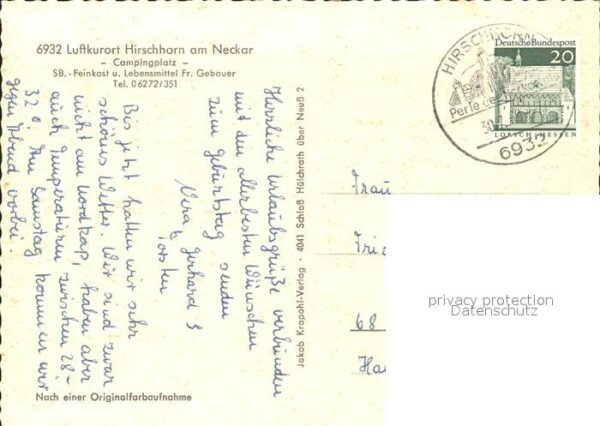 6932 Luftkurort Hirschhorn am Neckar
– Campingplatz –
SB.- Feinkost u. Lebensmittel Fr. Gebauer
Tel. 06272/351
HIRSCHHORN
Perle des
30
6932
Deutsche Bundespost
20
LORSCH/HESSEN
Herzliche Urlaubsgrüße verbunden
mit den allerbesten Wünschen
zum Geburtstag senden
Vera, Gerhard &
Torsten
Bis jetzt hatten wir sehr
schönes Wetter. Wir sind zwar
nicht am Nordkap, haben aber
auch Temperaturen zwischen 28-
32°. Am Samstag kommen wir
gegen Abend vorbei.
Jakob Krapohl-Verlag · 4041 Schloß Hülchrath über Neuß 2
Frau
68
Nach einer Originalfarbaufnahme
privacy protection
Datenschutz